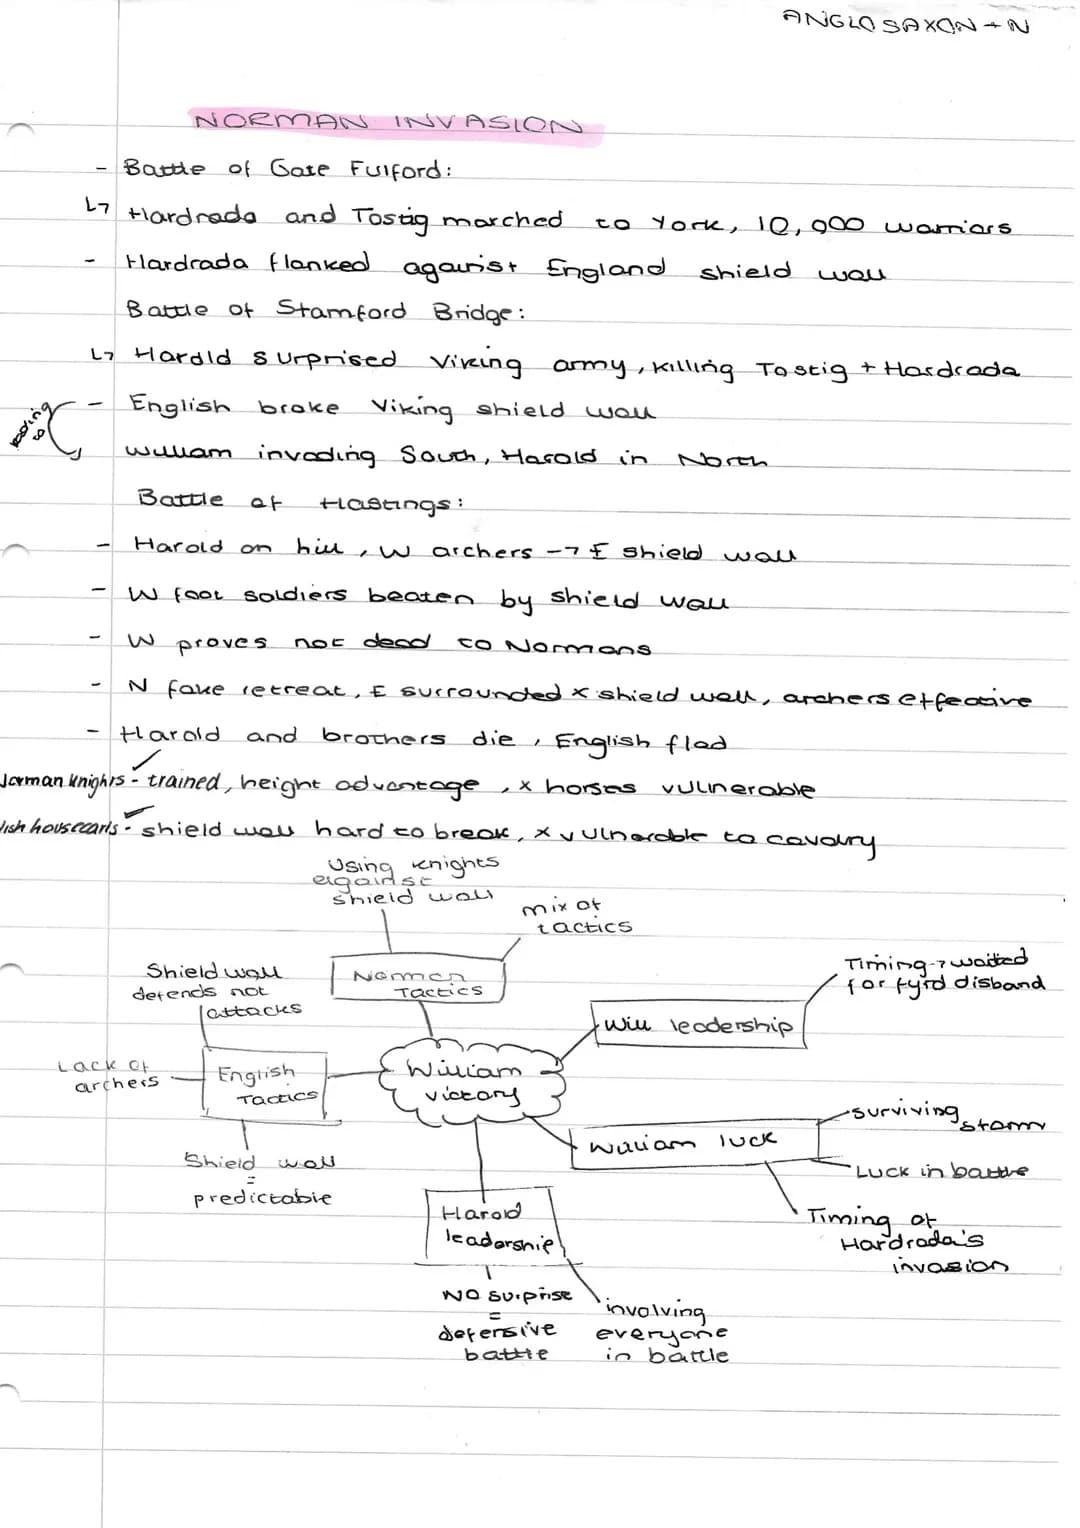 ANGLO SAXON + N
NORMAN INVASION
- Battle of Gate Fulford:
↳ Hardrada and Tostig marched to York, 10,000 warriors
- Hardrada flanked against England shield wall
Battle of Stamford Bridge:
↳ Harold surprised Viking army, killing Tostig + Hardrada
- English broke Viking shield wall
leading to
William invading South, Harold in North
Battle of Hastings:
- Harold on hill, W archers → E shield wall
- W foot soldiers beaten by shield wall
- W proves not dead to Normans
- N fake retreat, E surrounded x shield wall, archers effective
- Harold and brothers die, English fled
Norman knights - ✓ trained, height advantage, x horses vulnerable
lish housecarls - ✓ shield wall hard to break, x vulnerable to cavalry
Using knights
against
shield wall
mix of
tactics
Norman
Tactics
Shield wall
defends not
attacks
Lack of
archers
English
Tactics
Shield wall
=
predictable
William
victory
Will leadership
Timing → waited
for fyrd disband
William luck
surviving
storm
Luck in battle
Timing of
Hardrada's
invasion
Harold
leadership
No surprise
=
defensive
battle
involving
everyone
in battle